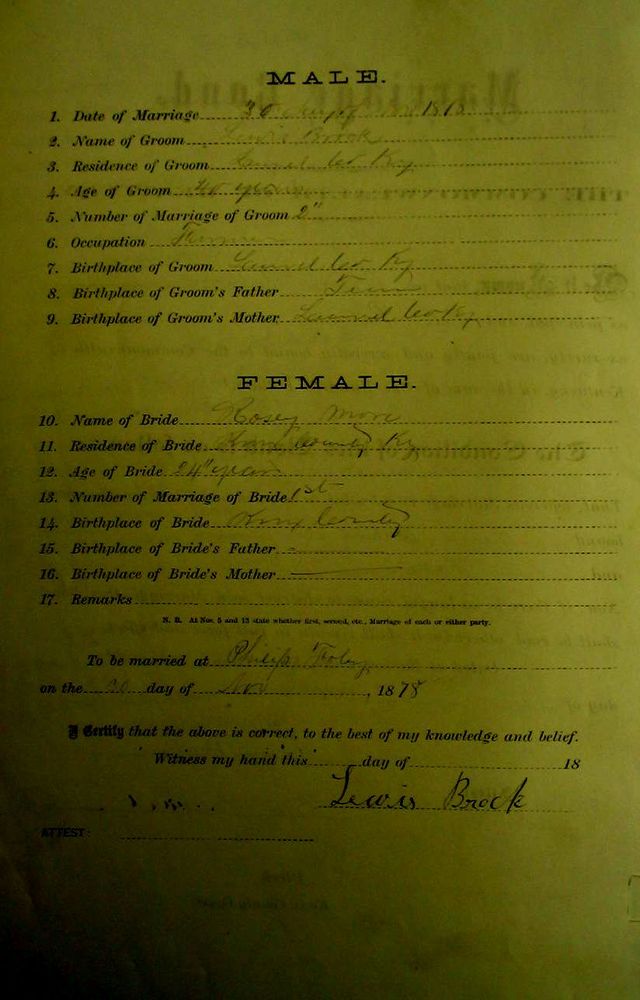 MALE.
1. Date of Marriage 30 1878
2. Name of Groom Lewis Brock
3. Residence of Groom Laurel Co Ky
4. Age of Groom 40 years
5. Number of Marriage of Groom 2"
6. Occupation Farmer
7. Birthplace of Groom Laurel Co Ky
8. Birthplace of Groom's Father Tenn
9. Birthplace of Groom's Mother Laurel Co Ky
FEMALE.
10. Name of Bride Rosey More
11. Residence of Bride Knox County Ky
12. Age of Bride 24" years
13. Number of Marriage of Bride 1st
14. Birthplace of Bride Knox County
15. Birthplace of Bride's Father
16. Birthplace of Bride's Mother
17. Remarks
N. B. At Nos. 5 and 13 state whether first, second, etc., Marriage of each or either party.
To be married at Philip Foley
on the 30 day of Nov, 1878
I Certify that the above is correct, to the best of my knowledge and belief.
Witness my hand this day of 18
Lewis Brock
ATTEST: